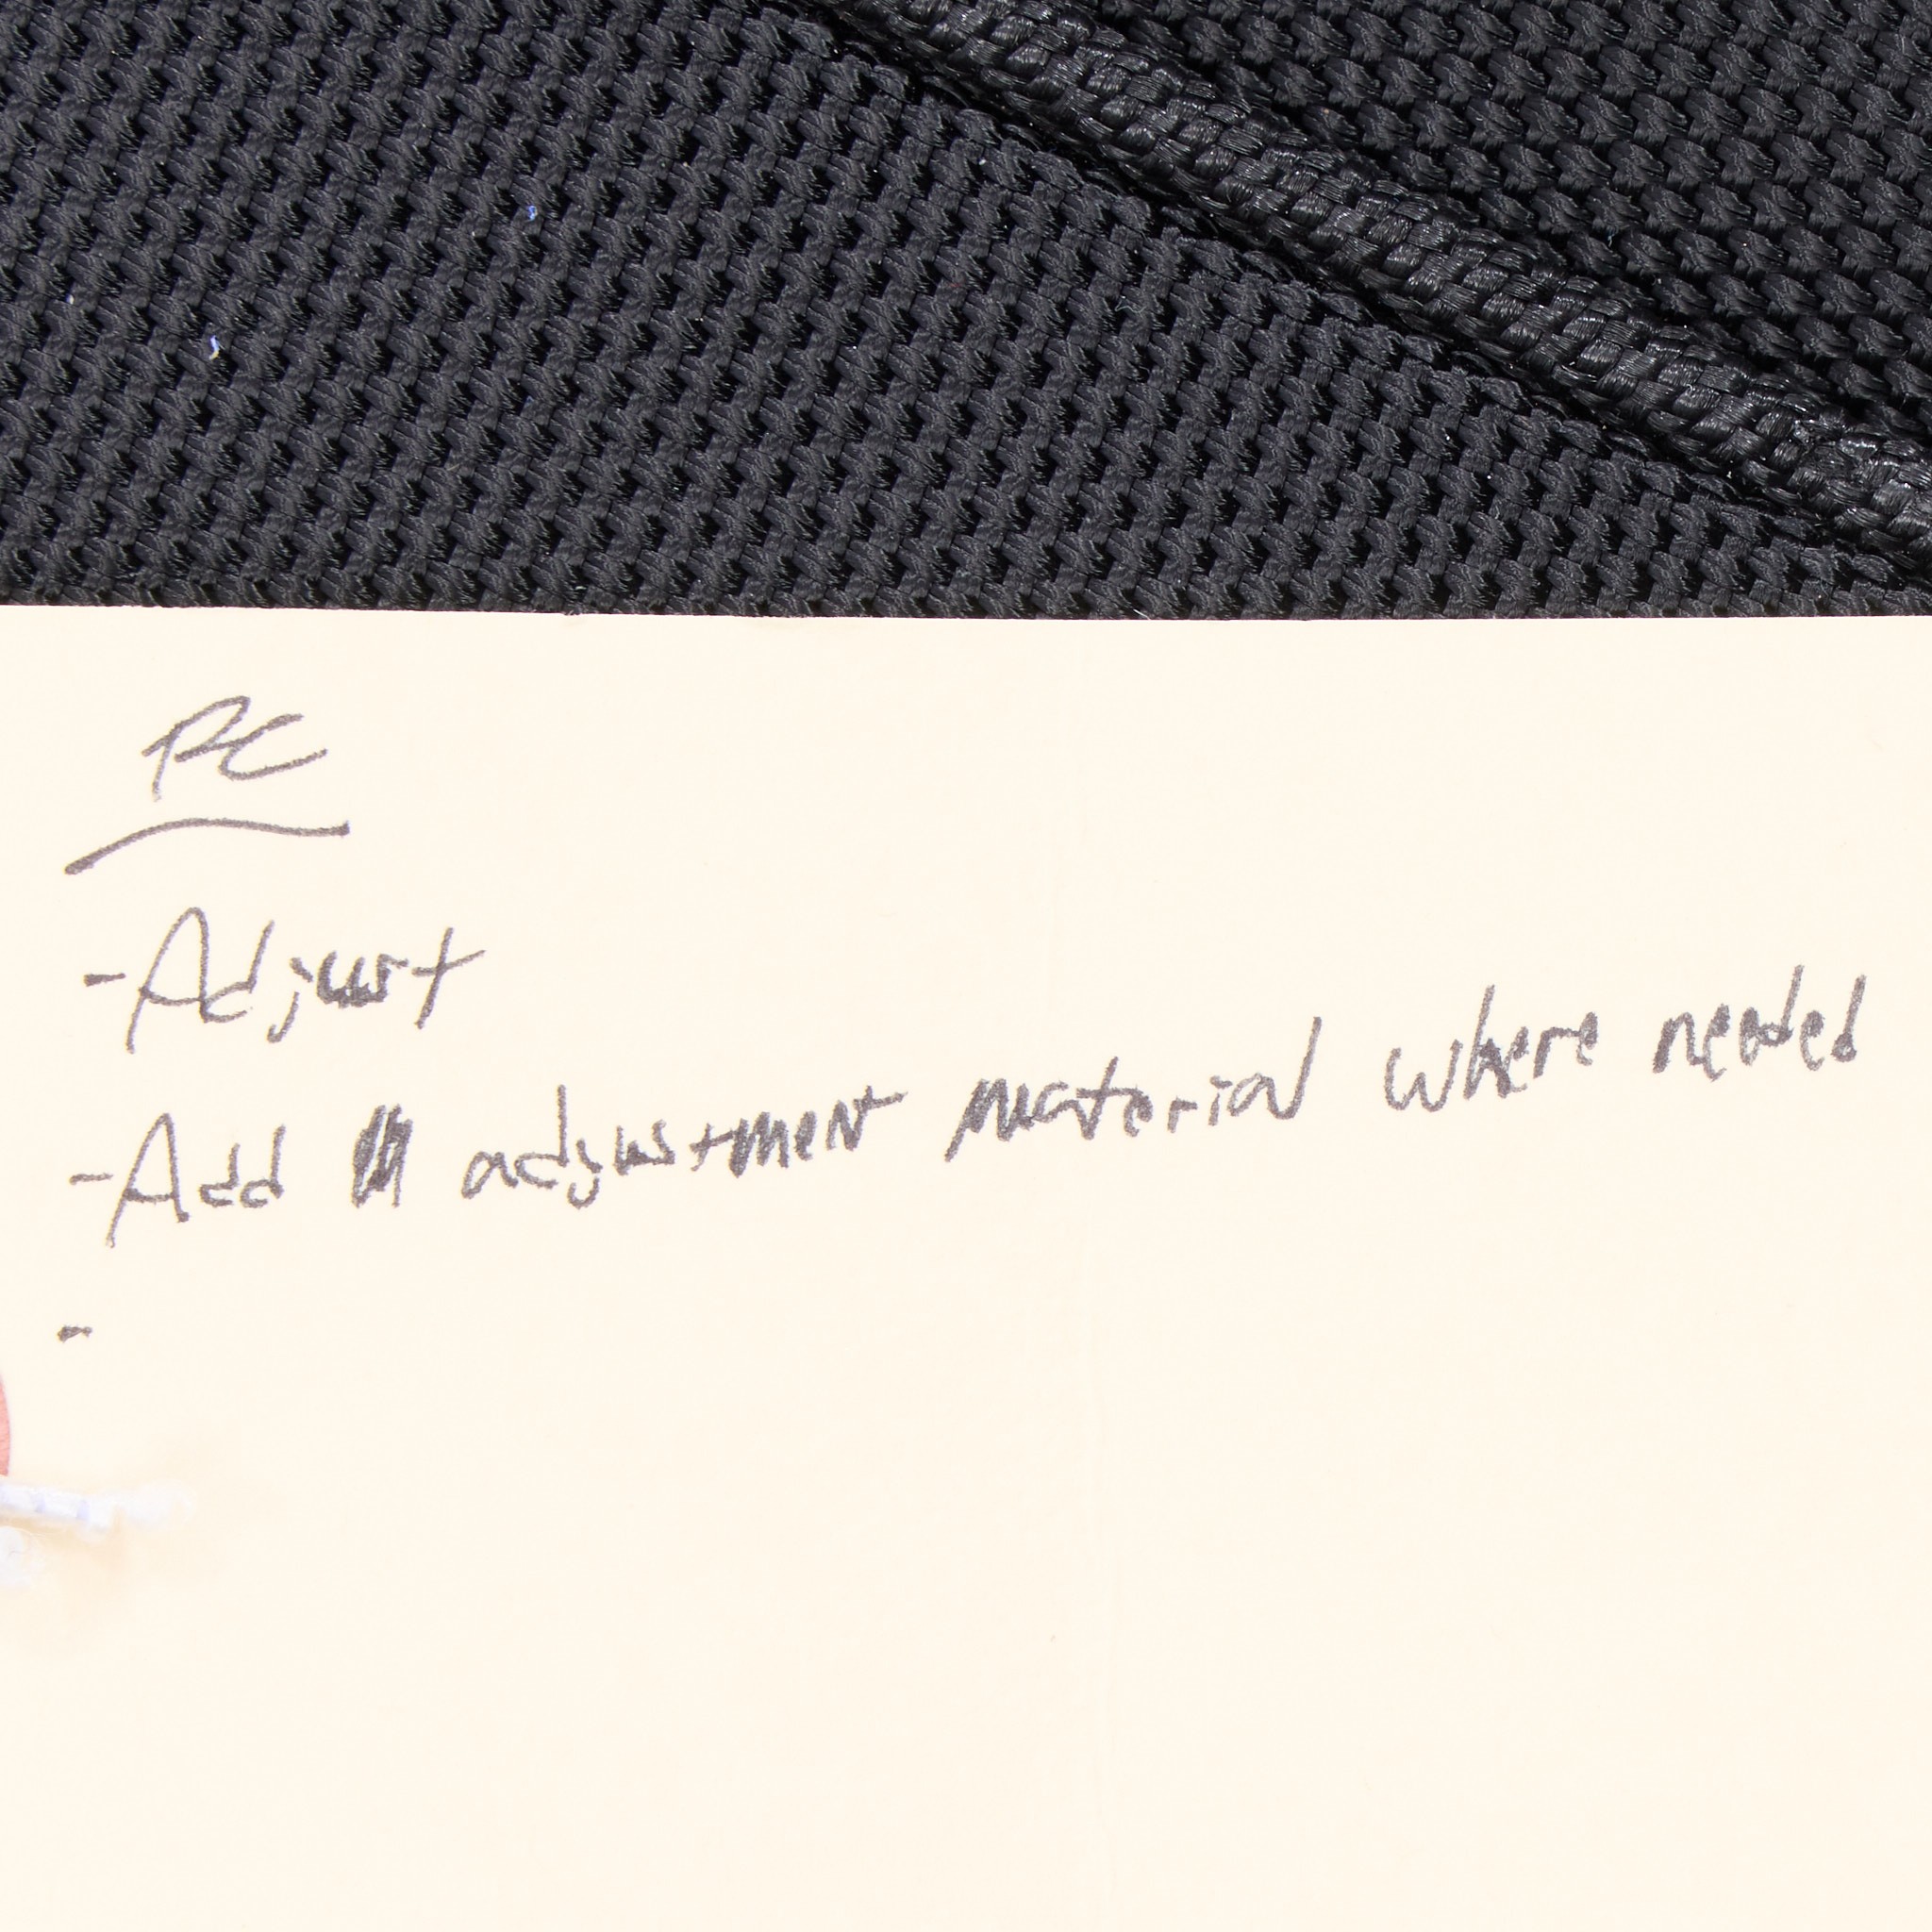 PC
- Adjust
- Add adjustment material where needed
-